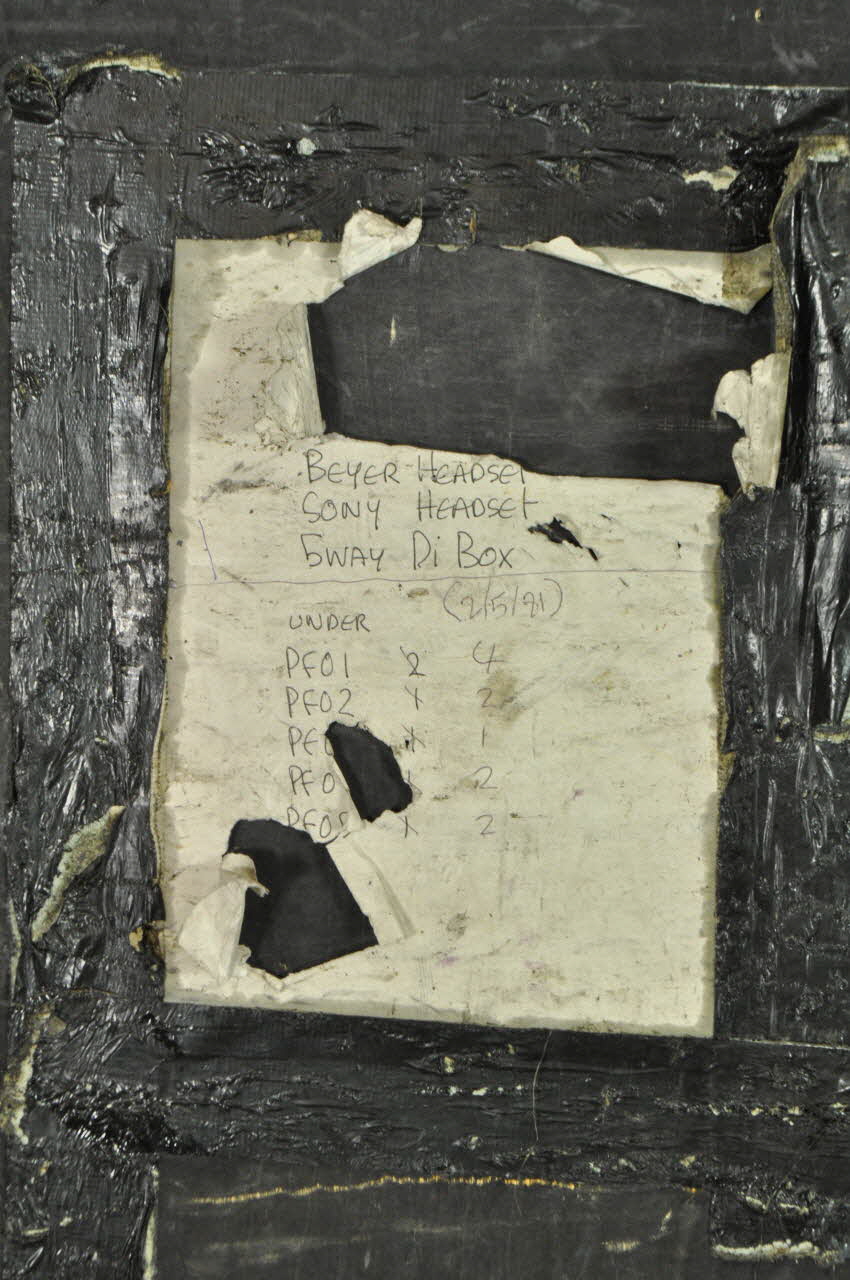 BEYER HEADSET
SONY HEADSET
5WAY Di BOX
(2/5/21)
UNDER
PF01 2 4
PF02 1 2
1
PF0 2
PF05 1 2